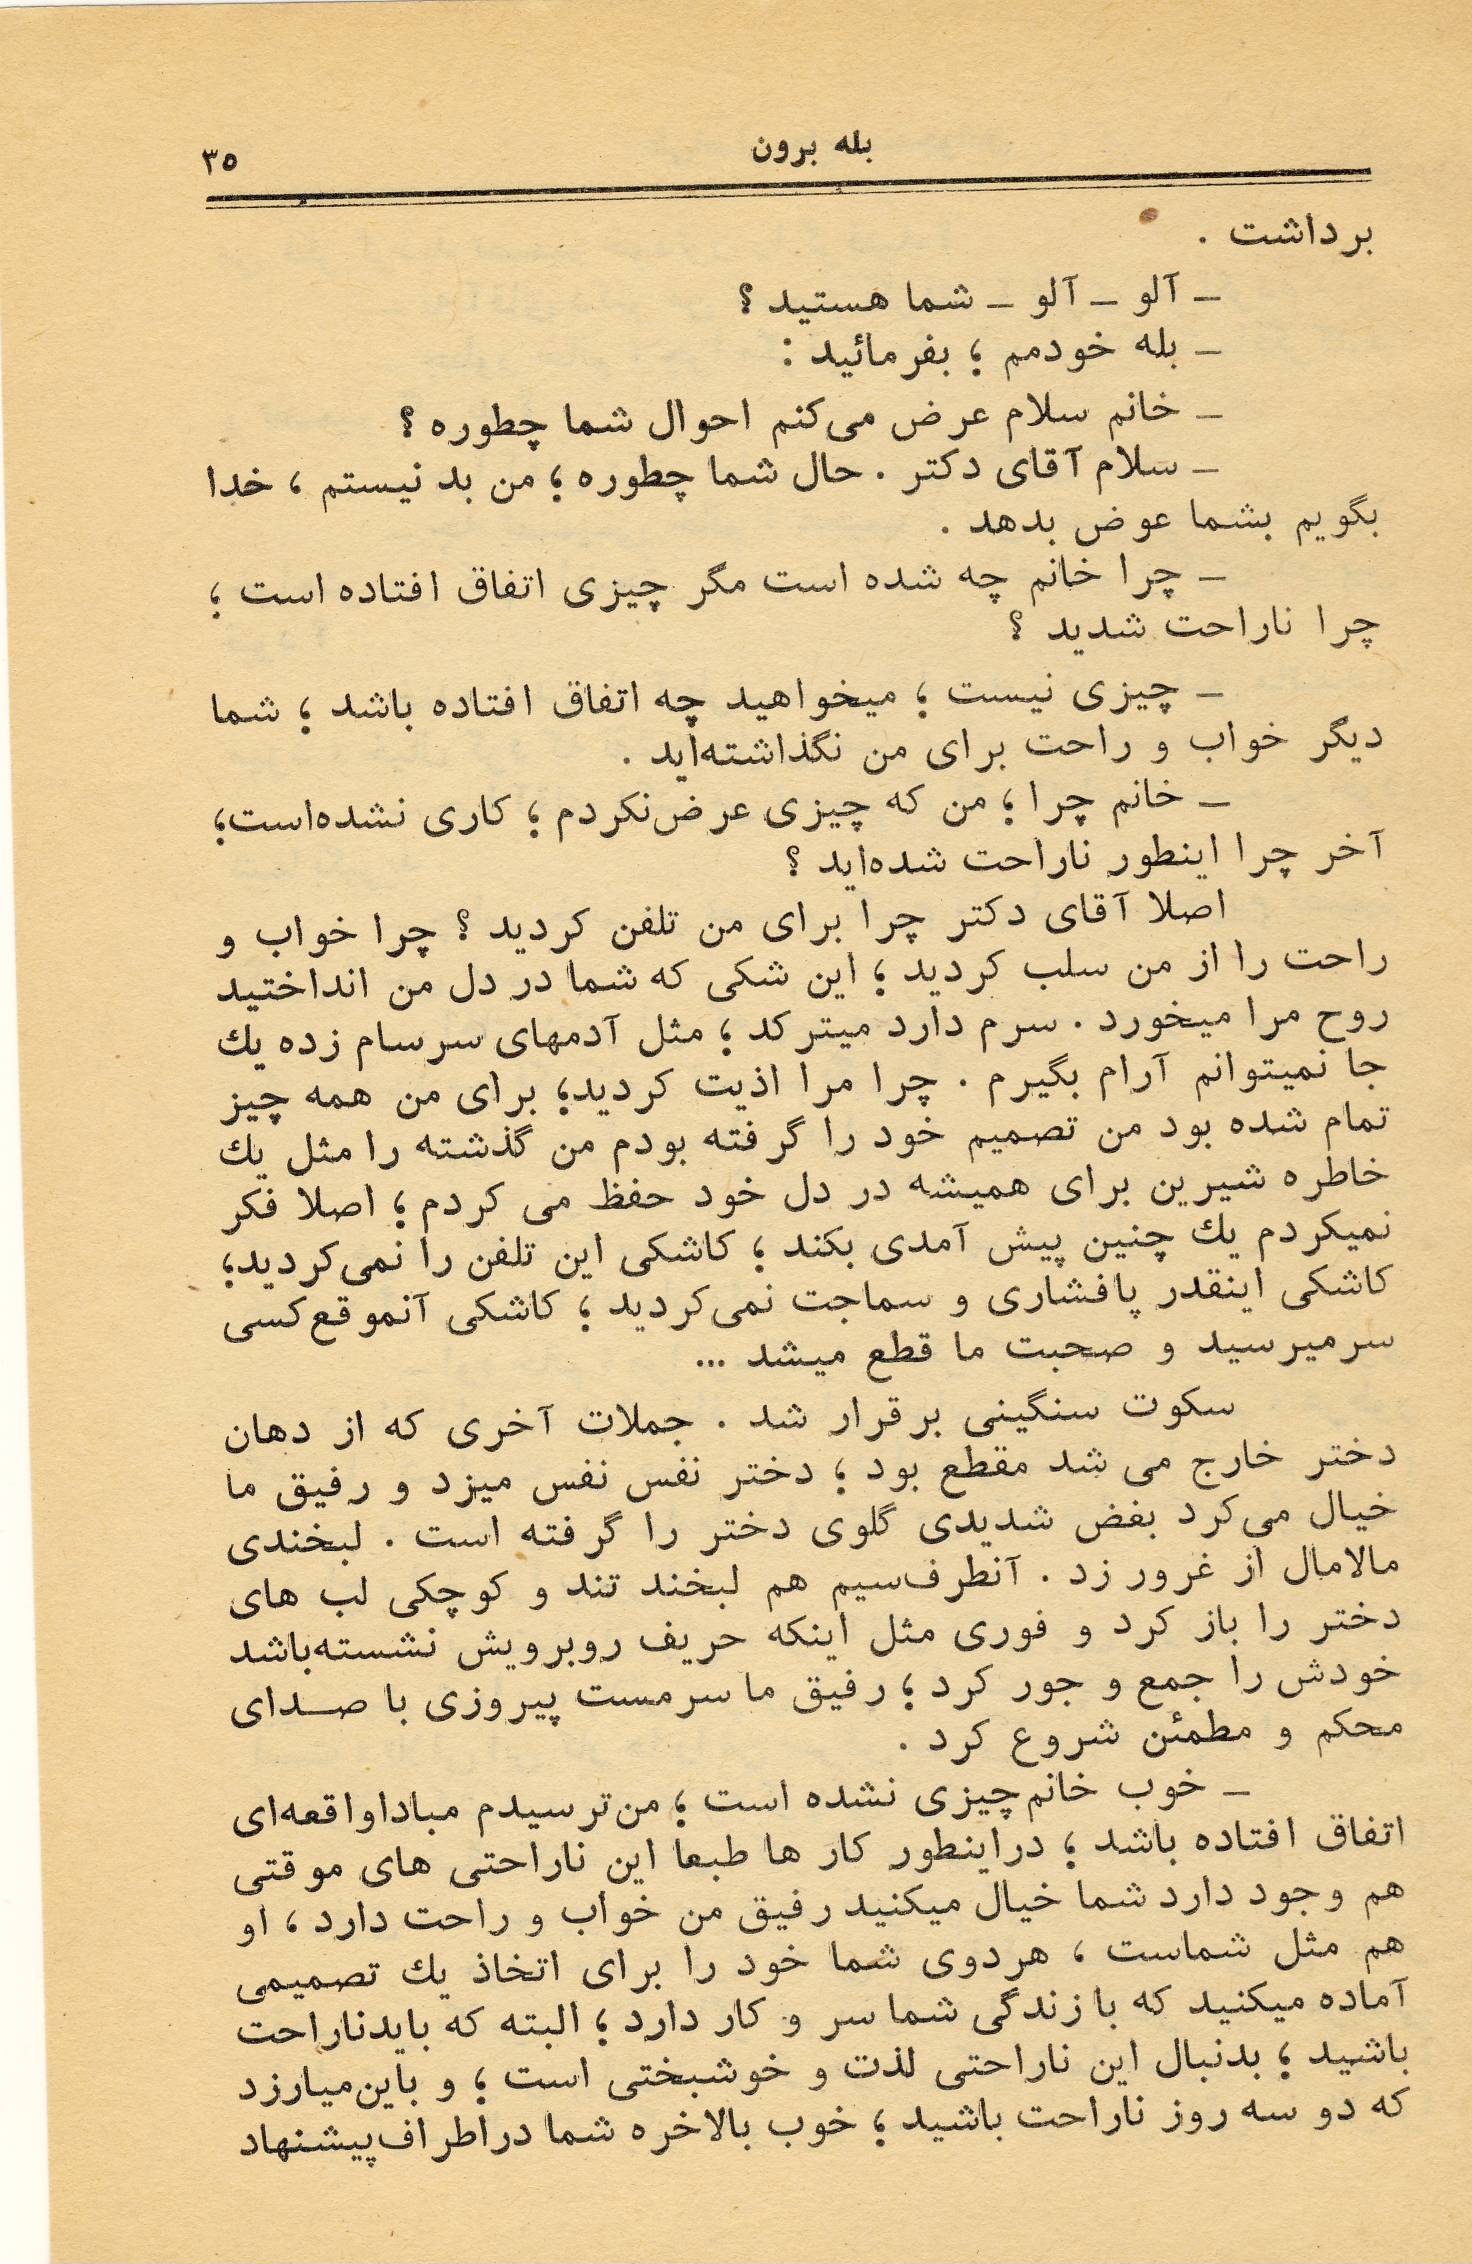 بله برون
۳۵
برداشت .
ـ آلو ـ آلو ـ شما هستید ؟
ـ بله خودمم ؛ بفرمائید :
ـ خانم سلام عرض می‌کنم احوال شما چطوره ؟
ـ سلام آقای دکتر . حال شما چطوره ؛ من بد نیستم ، خدا
بگویم بشما عوض بدهد .
ـ چرا خانم چه شده است مگر چیزی اتفاق افتاده است ؛
چرا ناراحت شدید ؟
ـ چیزی نیست ؛ میخواهید چه اتفاق افتاده باشد ؛ شما
دیگر خواب و راحت برای من نگذاشته‌اید .
ـ خانم چرا ؛ من که چیزی عرض‌نکردم ؛ کاری نشده‌است؛
آخر چرا اینطور ناراحت شده‌اید ؟
اصلا آقای دکتر چرا برای من تلفن کردید ؟ چرا خواب و
راحت را از من سلب کردید ؛ این شکی که شما در دل من انداختید
روح مرا میخورد . سرم دارد میترکد ؛ مثل آدمهای سرسام زده یك
جا نمیتوانم آرام بگیرم . چرا مرا اذیت کردید؛ برای من همه چیز
تمام شده بود من تصمیم خود را گرفته بودم من گذشته را مثل یك
خاطره شیرین برای همیشه در دل خود حفظ می کردم ؛ اصلا فکر
نمیکردم یك چنین پیش آمدی بکند ؛ کاشکی این تلفن را نمی‌کردید؛
کاشکی اینقدر پافشاری و سماجت نمی‌کردید ؛ کاشکی آنموقع‌کسی
سر میرسید و صحبت ما قطع میشد ...
سکوت سنگینی برقرار شد . جملات آخری که از دهان
دختر خارج می شد مقطع بود ؛ دختر نفس نفس میزد و رفیق ما
خیال می‌کرد بفض شدیدی گلوی دختر را گرفته است . لبخندی
مالامال از غرور زد . آنطرف‌سیم هم لبخند تند و کوچکی لب های
دختر را باز کرد و فوری مثل اینکه حریف روبرویش نشسته‌باشد
خودش را جمع و جور کرد ؛ رفیق ما سرمست پیروزی با صـدای
محکم و مطمئن شروع کرد .
ـ خوب خانم چیزی نشده است ؛ من‌ترسیدم مبادا واقعه‌ای
اتفاق افتاده باشد ؛ دراینطور کار ها طبعا این ناراحتی های موقتی
هم وجود دارد شما خیال میکنید رفیق من خواب و راحت دارد ، او
هم مثل شماست ، هردوی شما خود را برای اتخاذ یك تصمیمی
آماده میکنید که با زندگی شما سر و کار دارد ؛ البته که بایدناراحت
باشید ؛ بدنبال این ناراحتی لذت و خوشبختی است ؛ و باین‌میارزد
که دو سه روز ناراحت باشید ؛ خوب بالاخره شما دراطراف‌پیشنهاد